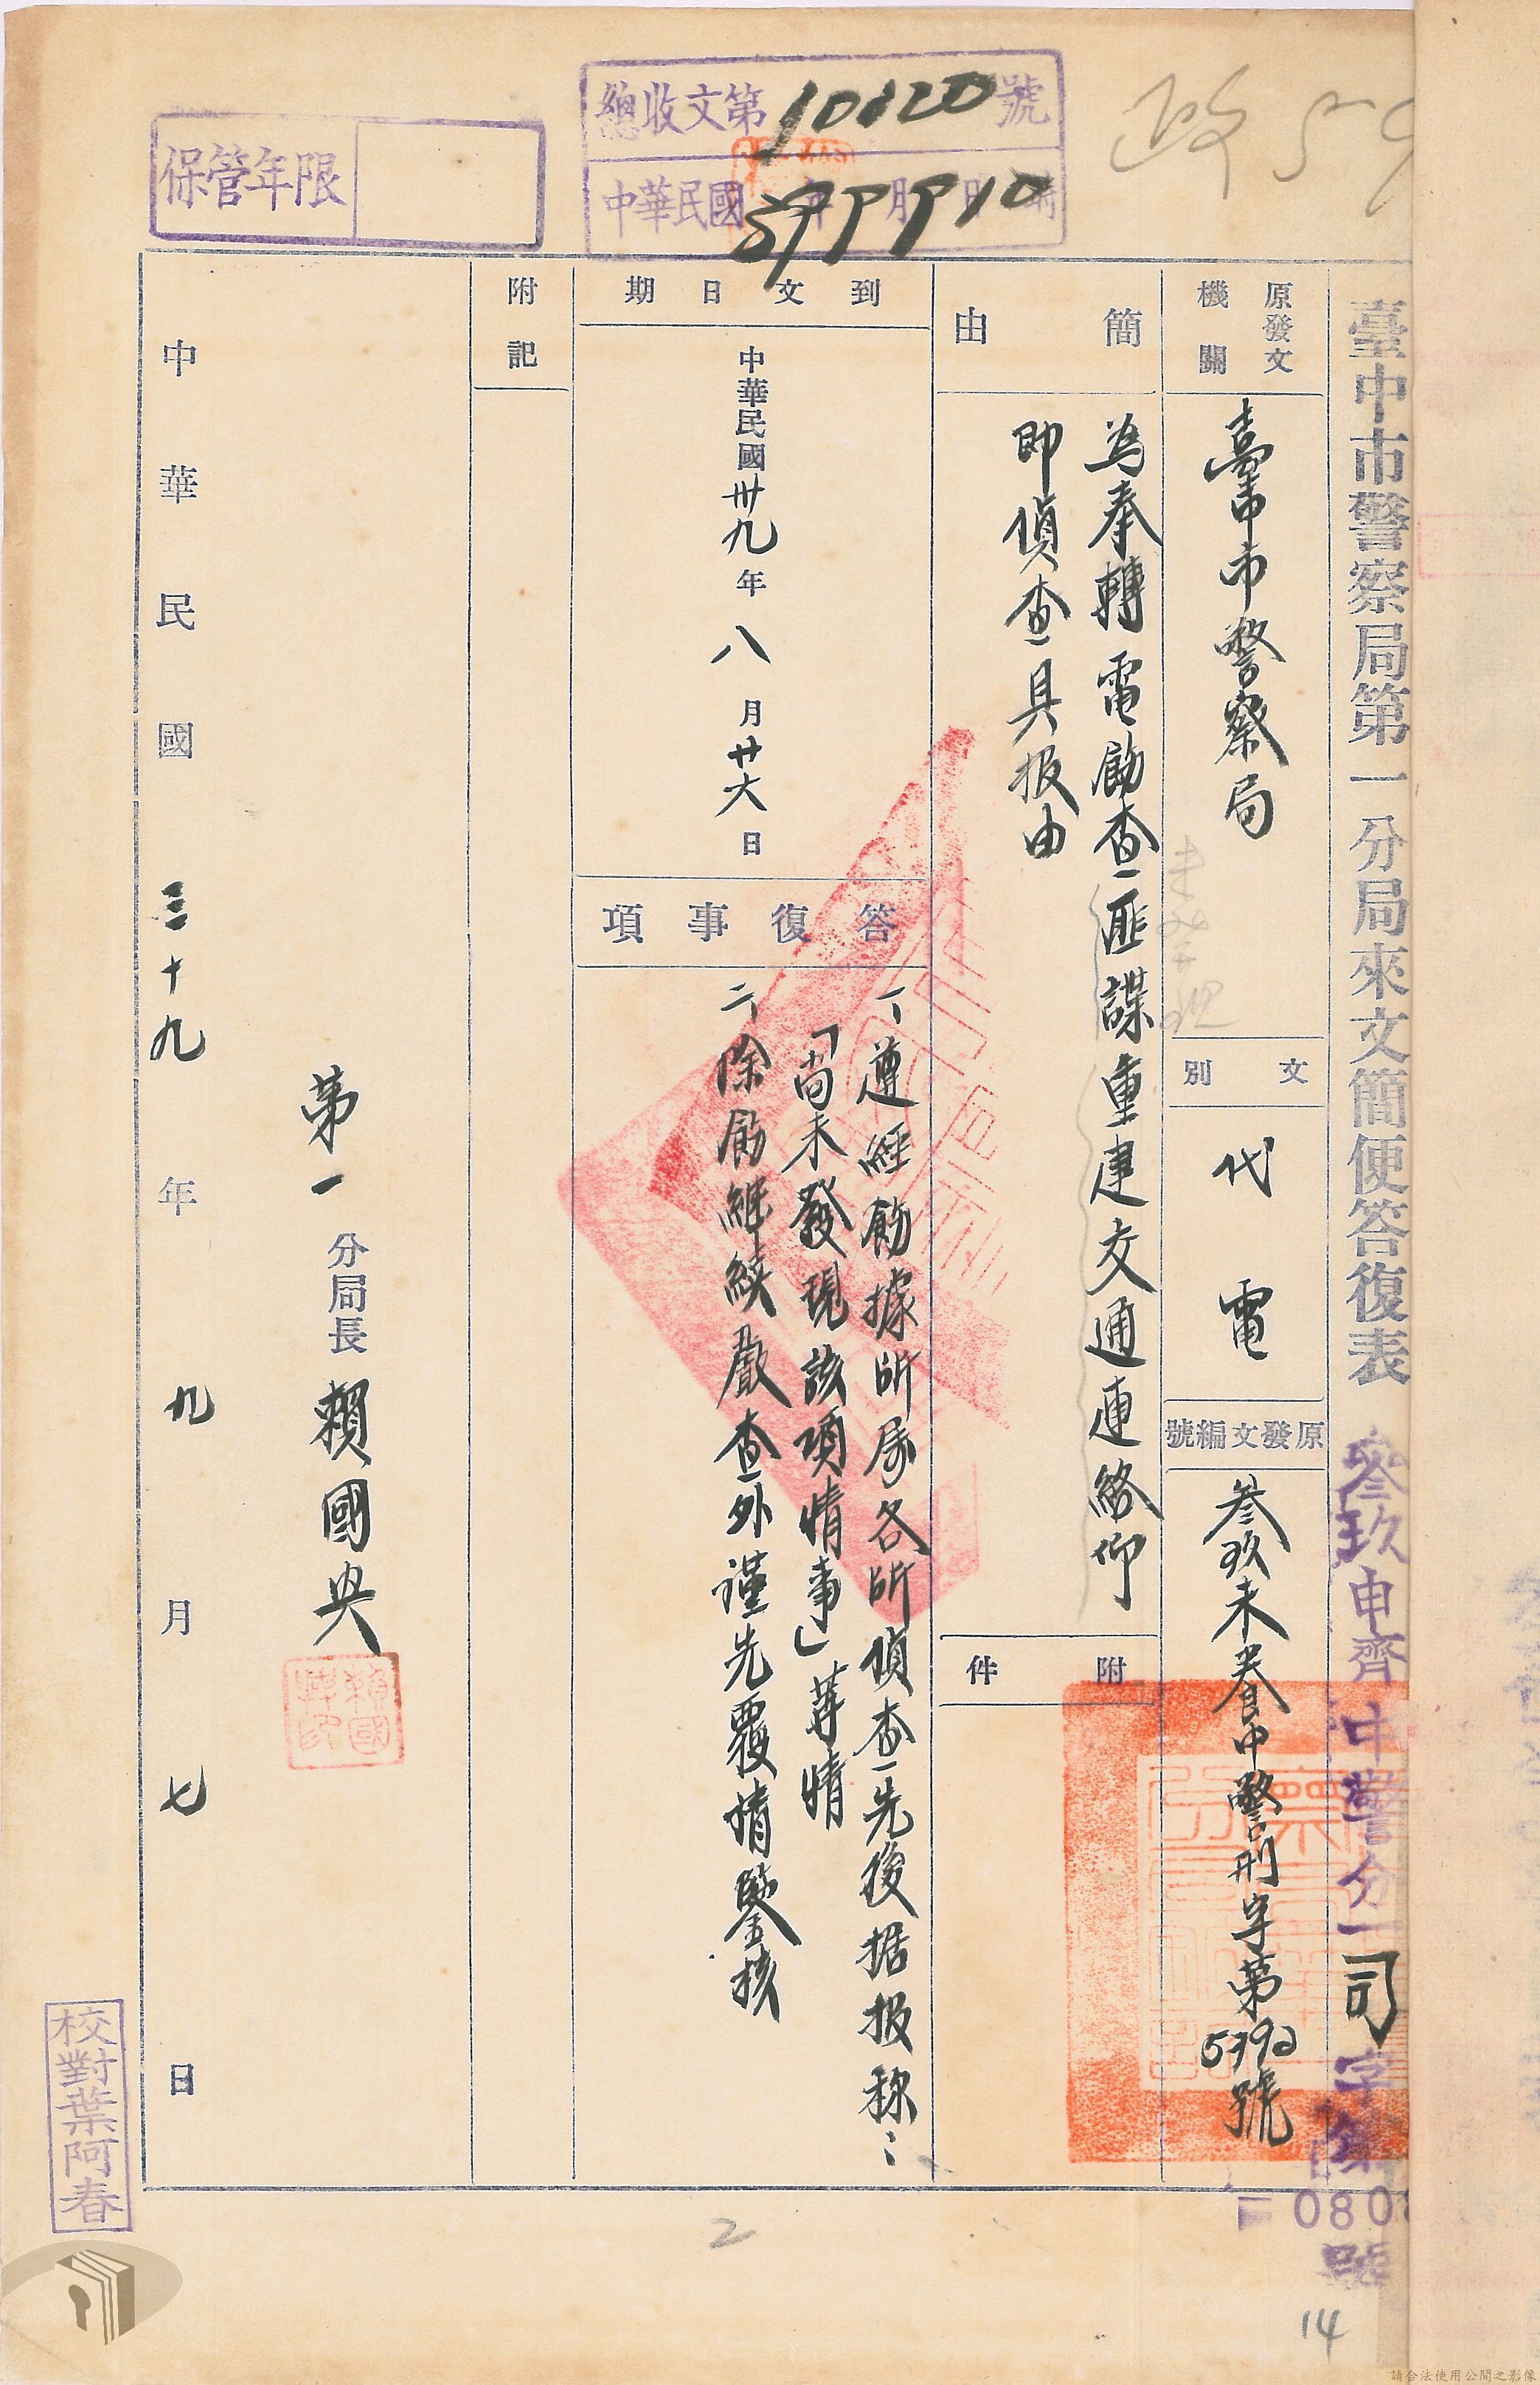 臺中市警察局第一分局來文簡便答復表
參玖申齊中警分一司字第
080
號
總收文第10120號
中華民國39年9月9日10時
保管年限
政
原發文機關
臺中市警察局
文別
代電
原發文編號
叁玖未養中警刑字第5392號
簡由
為奉轉電飭查匪諜重建交通連絡仰
即偵查具报由
附件
到文日期
中華民國卅九年八月廿六日
答復事項
一、遵經飭據所屬各所偵查先後据报称：
「尚未發現該項情事」等情
二、除飭继续嚴查外謹先覆請鑒核
附記
第一分局長賴國央
賴國央印
中華民國三十九年九月七日
校對葉阿春
2
14
請合法使用公開之影像